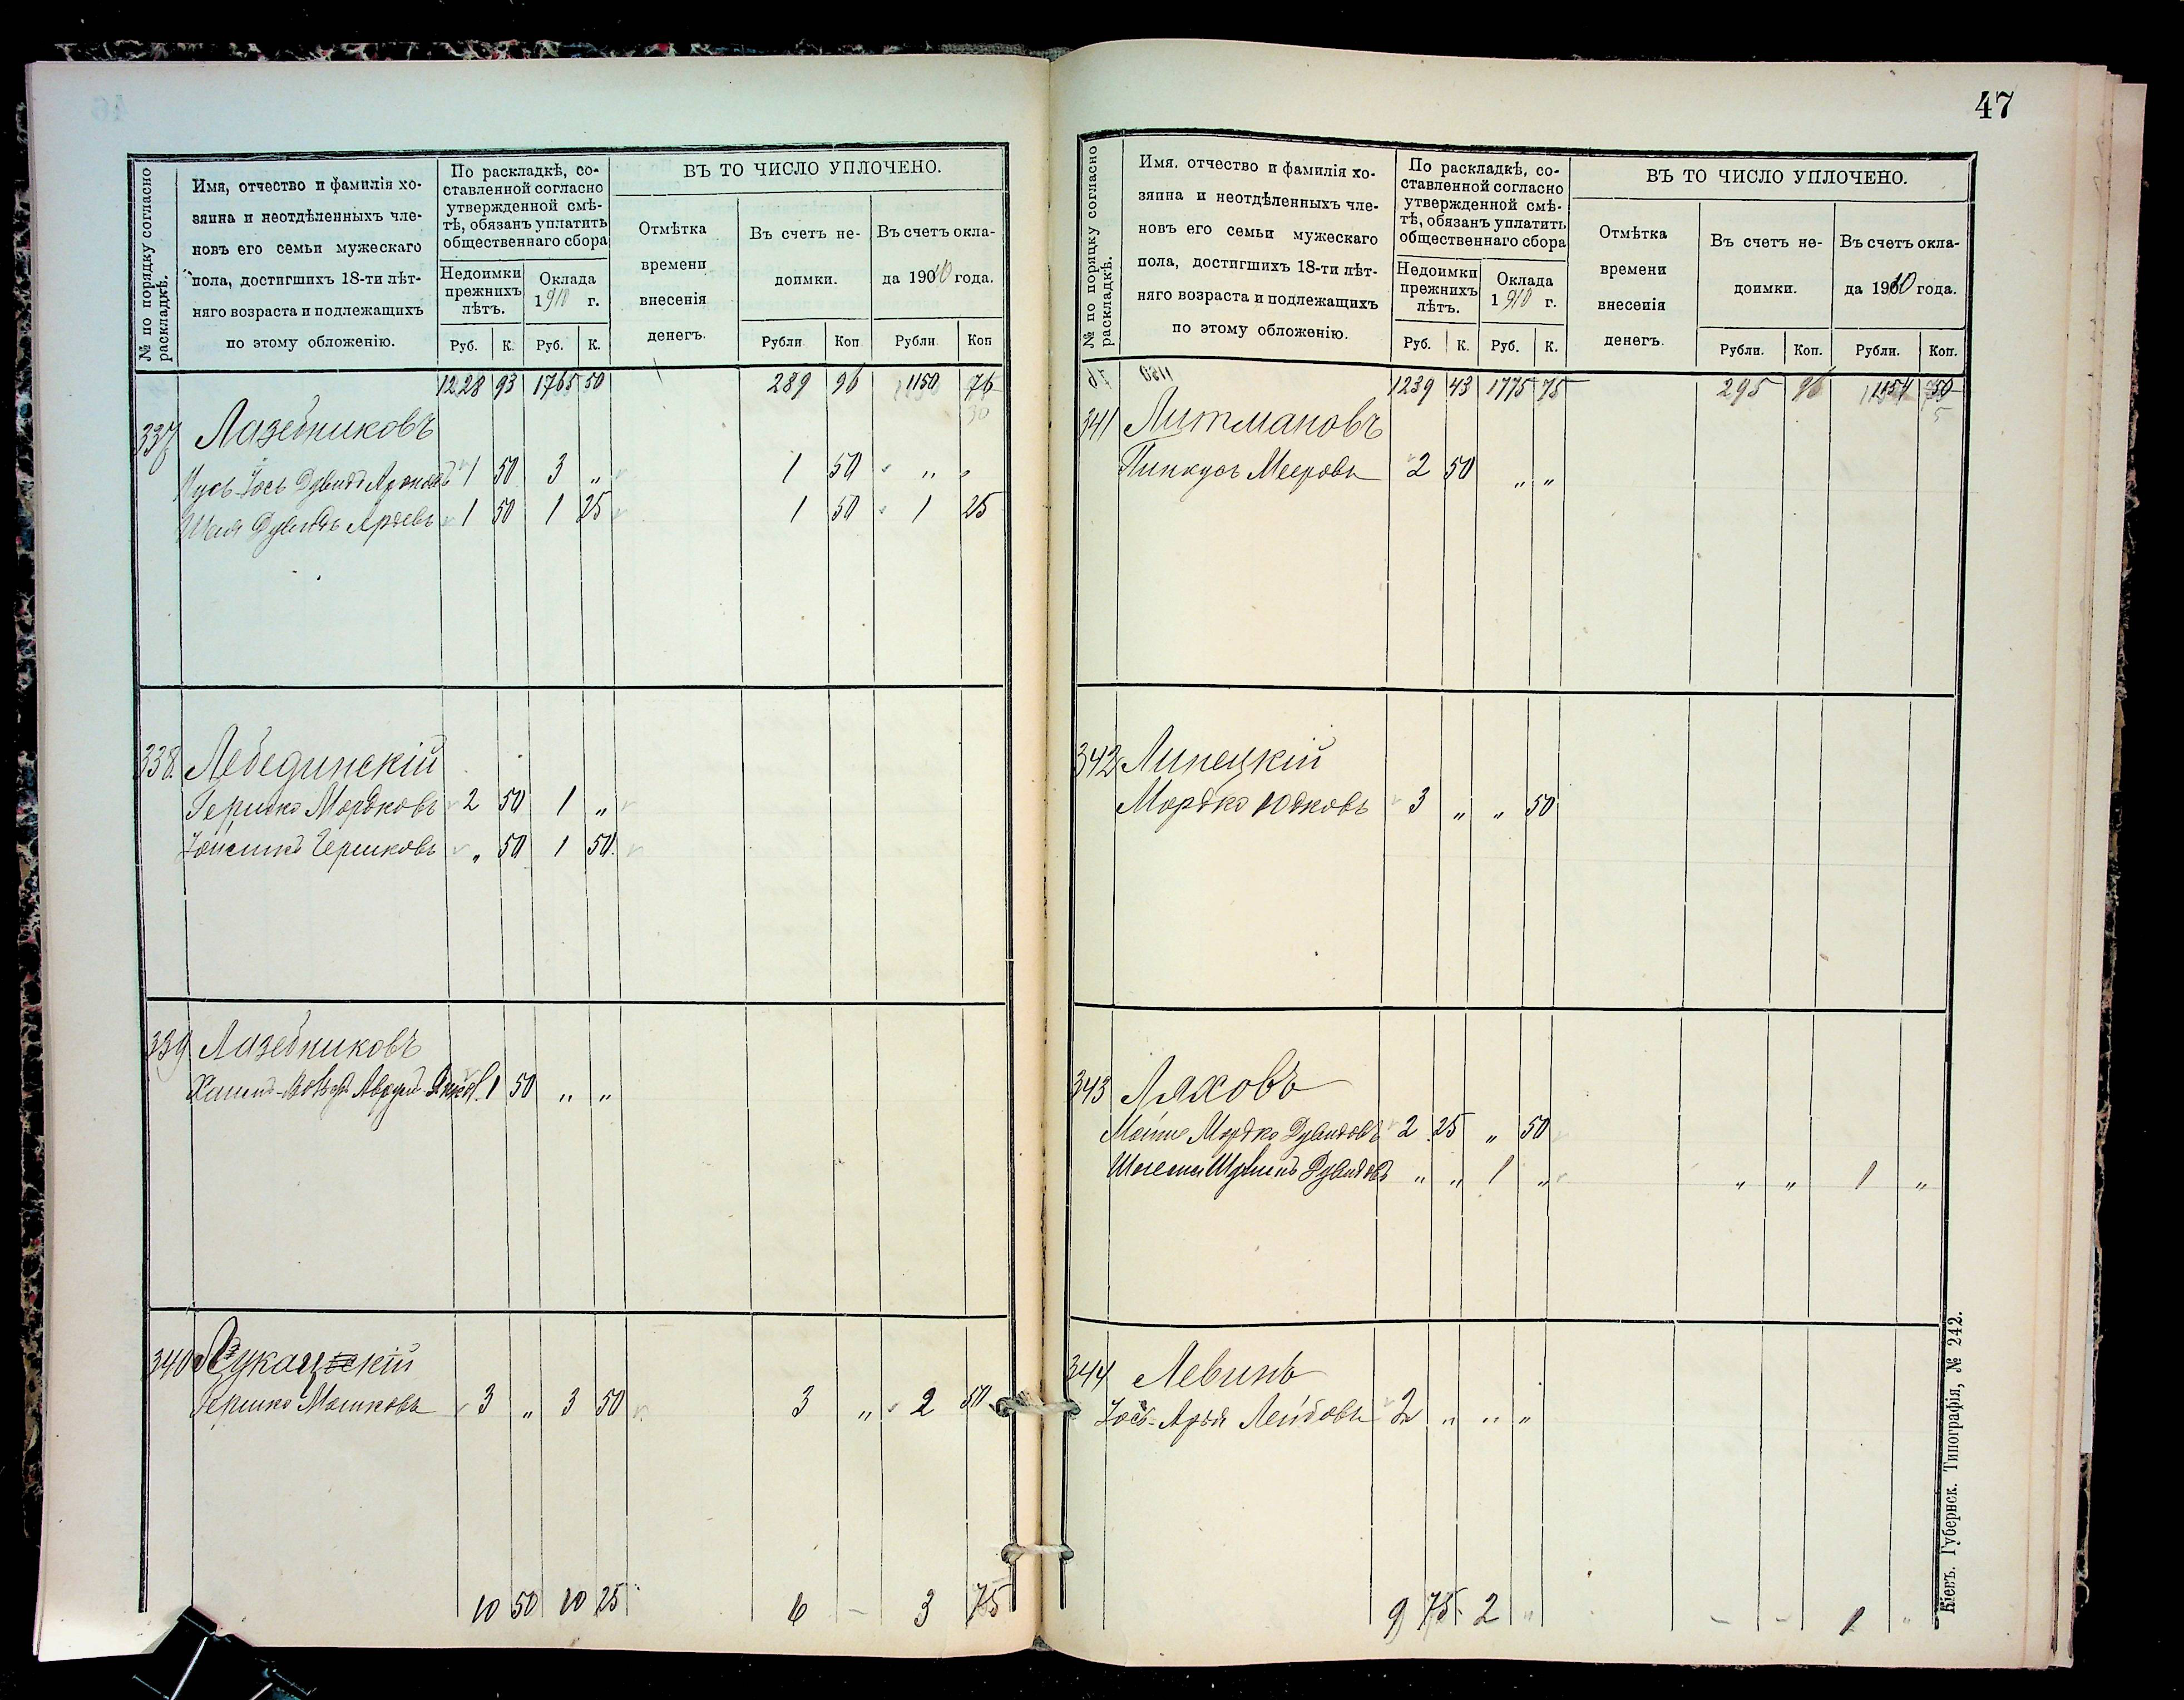 № по порядку согласно
раскладкѣ.
Имя, отчество и фамилія хо-
зяина и неотдѣленныхъ чле-
новъ его семьи мужескаго
пола, достигшихъ 18-ти лѣт-
няго возраста и подлежащихъ
по этому обложенію.
По раскладкѣ, со-
ставленной согласно
утвержденной смѣ-
тѣ, обязанъ уплатить
общественнаго сбора
Недоимки
прежнихъ
лѣтъ.
Оклада
1910 г.
Руб. К. Руб. К.
ВЪ ТО ЧИСЛО УПЛОЧЕНО.
Отмѣтка
времени
внесенія
денегъ.
Въ счетъ не-
доимки.
Въ счетъ окла-
да 1910 года.
Рубли Коп Рубли Коп
1228 93 1765 50 289 96 1150 76
30
337 Лазебниковъ
Дувидъ 1 50 3 „ 1 50 „ „
Шая Дувидъ Арьевъ 1 50 1 25 1 50 1 25
338. Лебединскій
Гершко Мордковъ 2 50 1 „
Гершковъ „ 50 1 50.
339 Лазебниковъ
1 50 „ „
340
Гершко Мошковъ 3 „ 3 50 3 „ 2 50
10 50 10 25 6 – 3 75
47
№ по порядку согласно
раскладкѣ.
Имя, отчество и фамилія хо-
зяина и неотдѣленныхъ чле-
новъ его семьи мужескаго
пола, достигшихъ 18-ти лѣт-
няго возраста и подлежащихъ
по этому обложенію.
По раскладкѣ, со-
ставленной согласно
утвержденной смѣ-
тѣ, обязанъ уплатить
общественнаго сбора
Недоимки
прежнихъ
лѣтъ.
Оклада
1910 г.
Руб. К. Руб. К.
ВЪ ТО ЧИСЛО УПЛОЧЕНО.
Отмѣтка
времени
внесенія
денегъ.
Въ счетъ не-
доимки.
Въ счетъ окла-
да 1910 года.
Рубли. Коп. Рубли. Коп.
1239 43 1775 75 295 96 1154 50
5
341 Литмановъ
Пинкусъ Мееровъ 2 50 „ „
342 Липецкій
Мордко Юдковъ 3 „ „ 50
343 Ляховъ
Мордко Дувидовъ 2 25 „ 50
Дувидовъ „ „ 1 „ „ „ 1 „
344 Левинъ
Іось-Арья Лейбовъ 2 „ „ „
9 75 2 „ – – 1 „
Кіевъ. Губернск. Типографія, № 242.